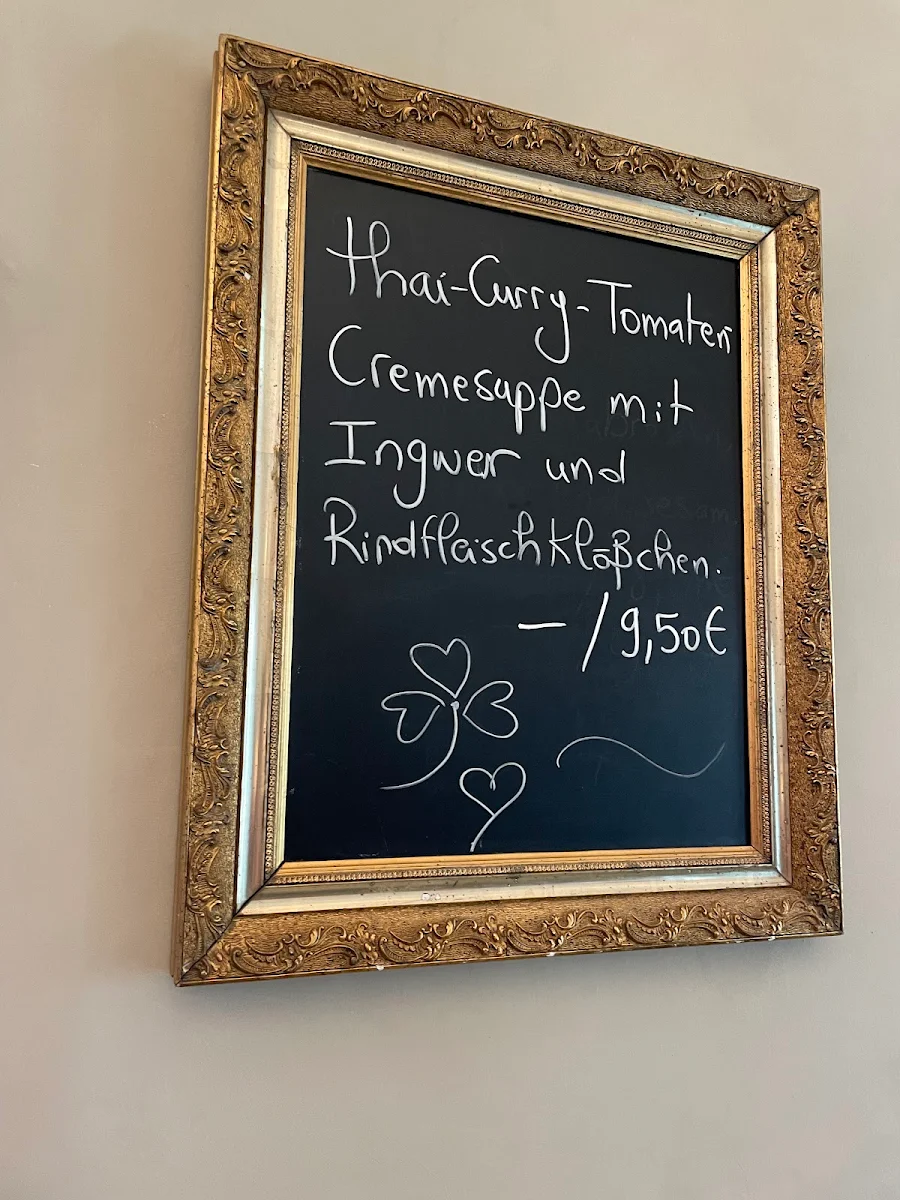 Thai-Curry-Tomaten
Cremesuppe mit
Ingwer und
Rindfleischkloßchen.
— / 9,50€